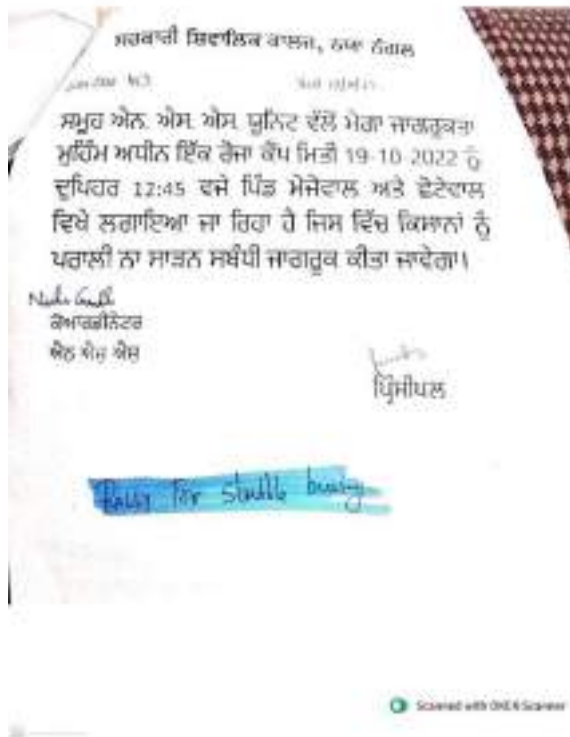 ਸਰਕਾਰੀ ਸ਼ਿਵਾਲਿਕ ਕਾਲਜ, ਨਯਾ ਨੰਗਲ
ਸਮੂਹ ਐਨ. ਐਸ. ਐਸ. ਯੂਨਿਟ ਵੱਲੋਂ ਮੇਗਾ ਜਾਗਰੂਕਤਾ
ਮੁਹਿੰਮ ਅਧੀਨ ਇੱਕ ਰੋਜਾ ਕੈਂਪ ਮਿਤੀ 19-10-2022 ਨੂੰ
ਦੁਪਿਹਰ 12:45 ਵਜੇ ਪਿੰਡ ਮੇਜੇਵਾਲ ਅਤੇ ਛੋਟੇਵਾਲ
ਵਿਖੇ ਲਗਾਇਆ ਜਾ ਰਿਹਾ ਹੈ ਜਿਸ ਵਿੱਚ ਕਿਸਾਨਾਂ ਨੂੰ
ਪਰਾਲੀ ਨਾ ਸਾੜਨ ਸਬੰਧੀ ਜਾਗਰੂਕ ਕੀਤਾ ਜਾਵੇਗਾ।
ਕੋਆਰਡੀਨੇਟਰ
ਐਨ ਐਸ ਐਸ
ਪ੍ਰਿੰਸੀਪਲ
Rally for stubble burning
Scanned with OKEN Scanner